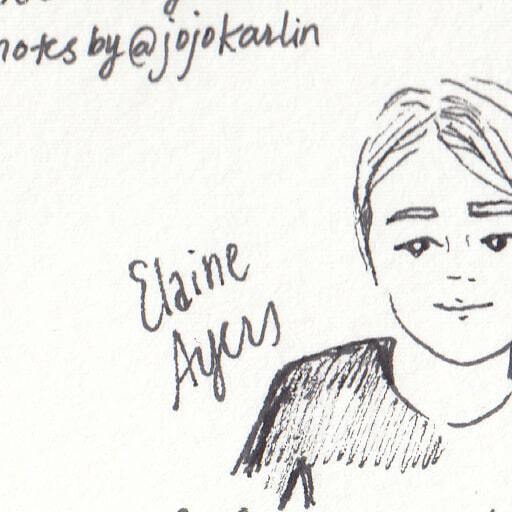 notes by @jojokarlin
Elaine
Ayers